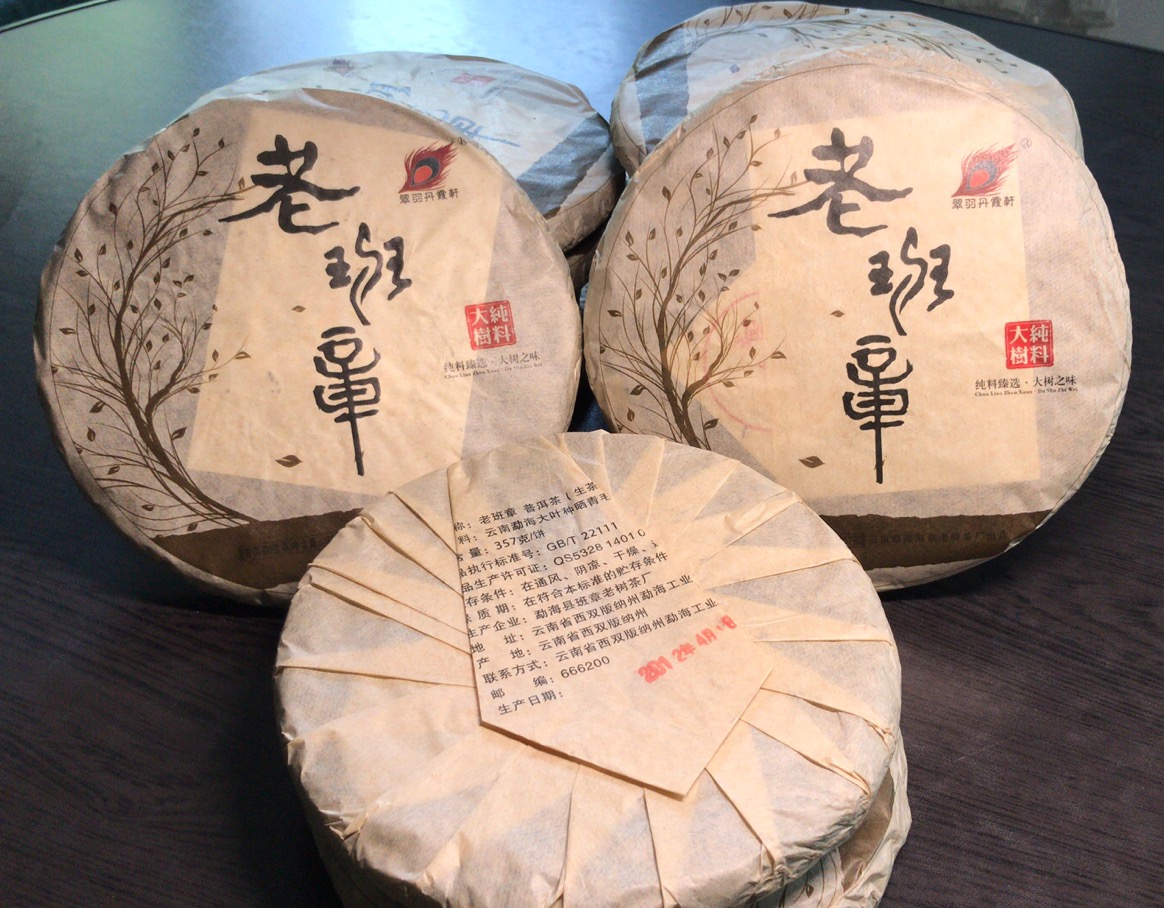 老班章
翠羽丹霞軒
大純
樹料
纯料臻选·大树之味
Chun Liao Zhen Xuan · Da Shu Zhi Wei
老班章
翠羽丹霞軒
大純
樹料
纯料臻选·大树之味
Chun Liao Zhen Xuan · Da Shu Zhi Wei
称：老班章 普洱茶（生茶
料：云南勐海大叶种晒青毛
量：357克/饼
品执行标准号：GB/T 22111
品生产许可证：QS5328 1401 0
存条件：在通风、阴凉、干燥、
质期：在符合本标准的贮存条件
生产企业：勐海县班章老树茶厂
地 址：云南省西双版纳州勐海工业
产 地：云南省西双版纳州
联系方式：云南省西双版纳州勐海工业
邮 编：666200
生产日期：
2012年4月18